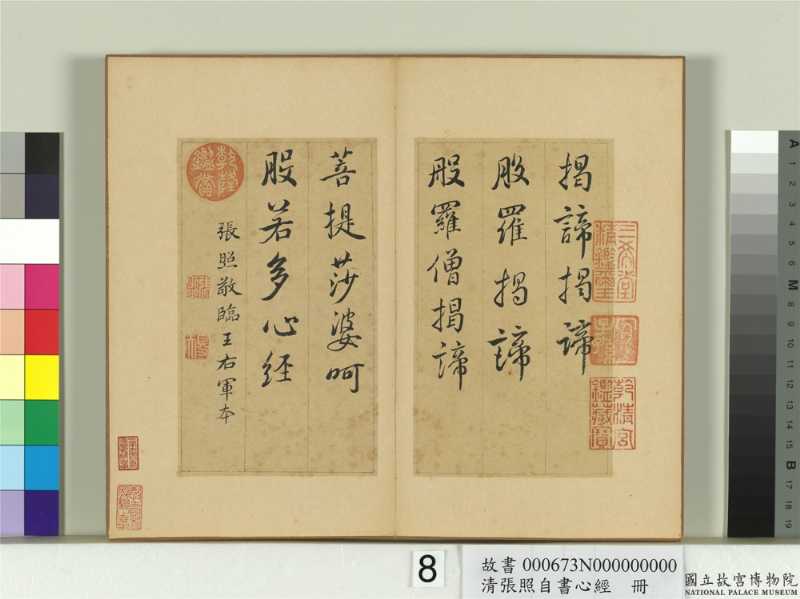 揭諦揭諦
般羅揭諦
般羅僧揭諦
菩提莎婆呵
般若多心經
張照敬臨王右軍本
三希堂精鑑璽
宜子孫
乾清宮鑑藏寶
乾隆鑑賞
8
故書 000673N000000000
清張照自書心經 冊
國立故宮博物院
NATIONAL PALACE MUSEUM
A 1 2 3 4 5 6 M 8 9 10 11 12 13 14 15 B 17 18 19